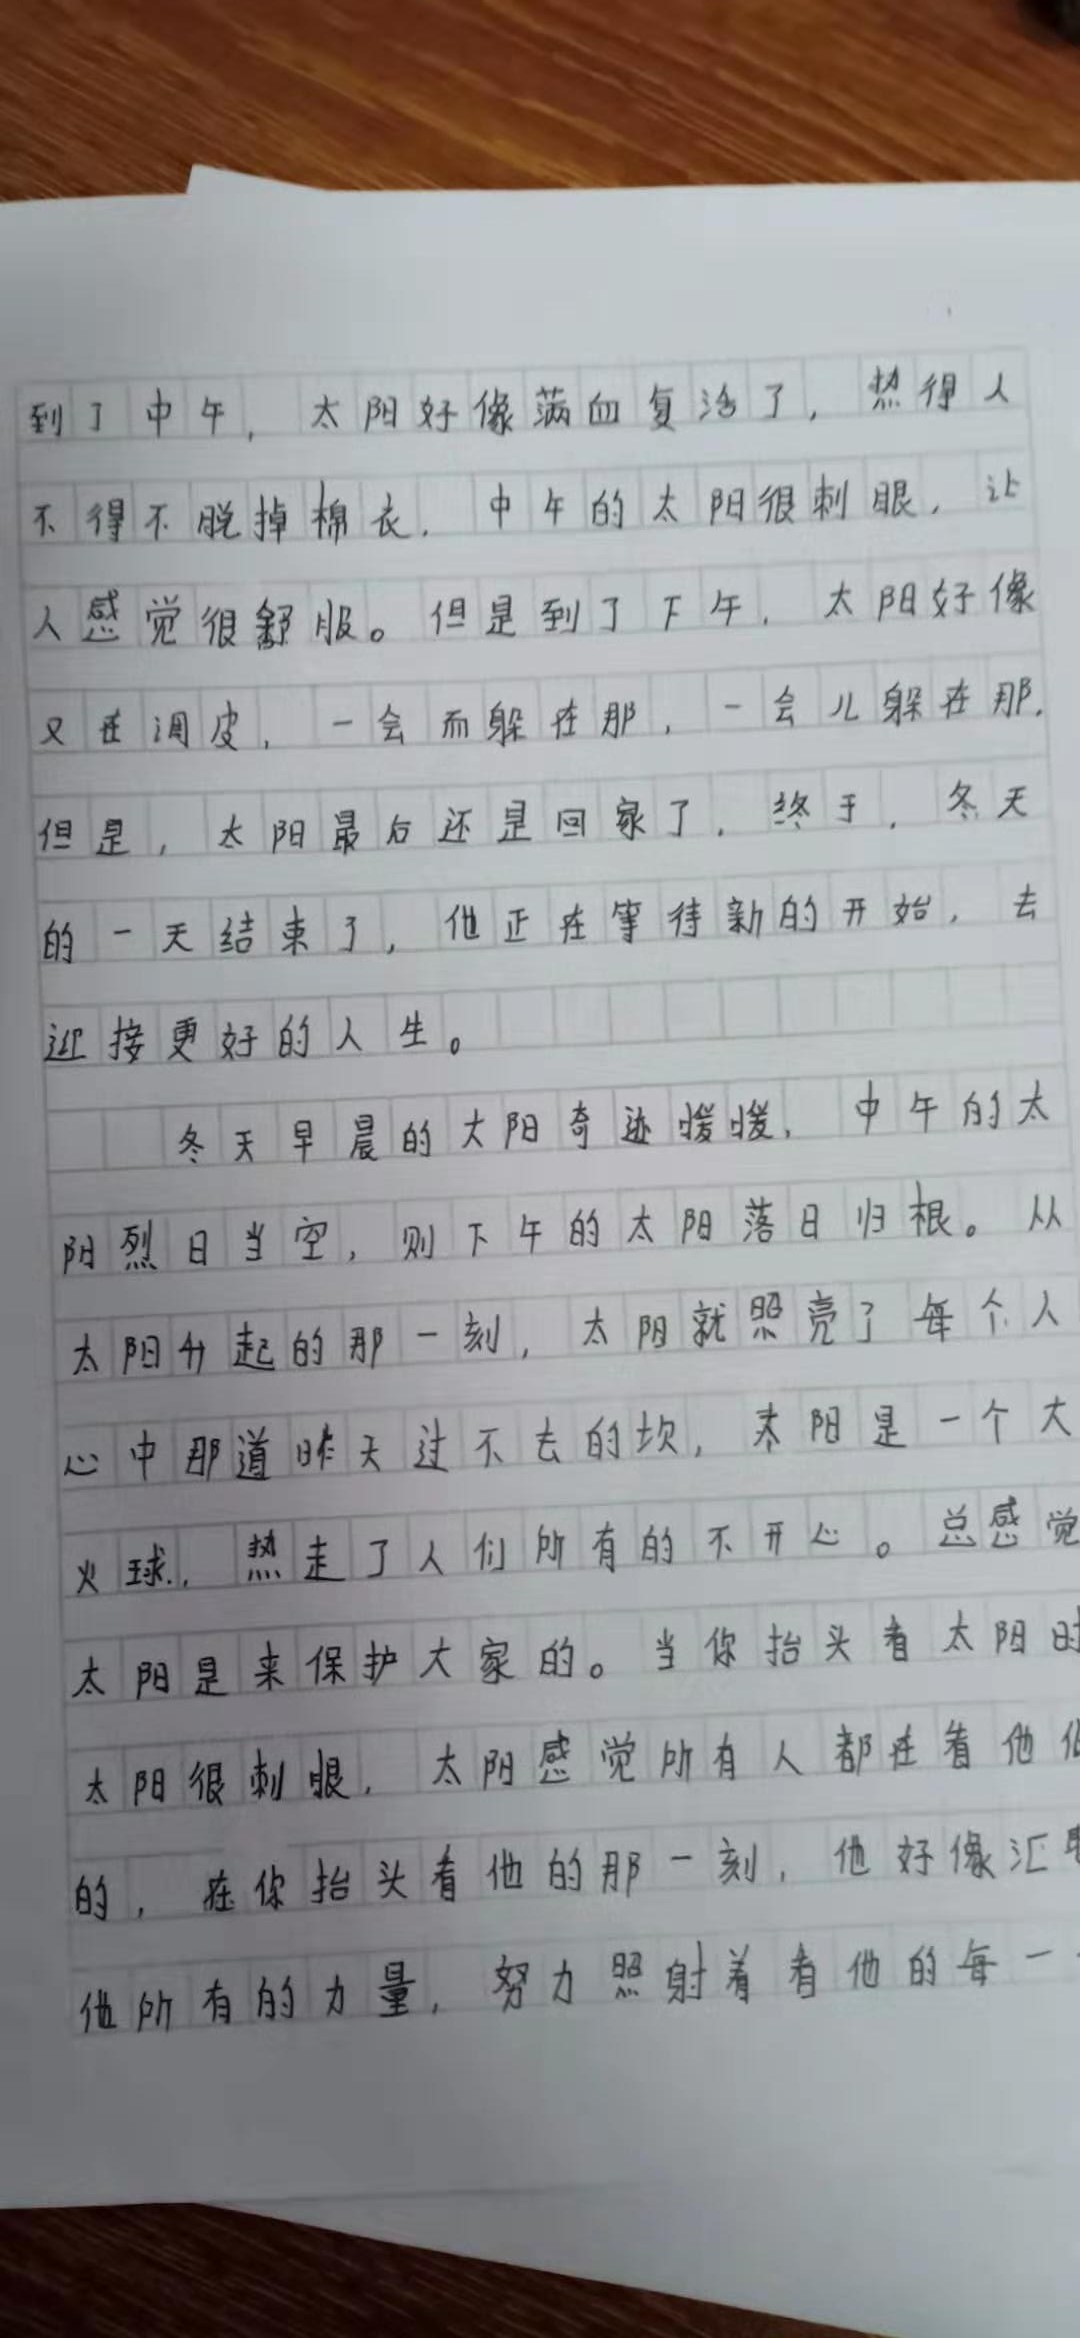 到了中午，太阳好像满血复活了，热得人
不得不脱掉棉衣，中午的太阳很刺眼，让
人感觉很舒服。但是到了下午，太阳好像
又在调皮，一会而躲在那，一会儿躲在那，
但是，太阳最后还是回家了，终于，冬天
的一天结束了，他正在等待新的开始，去
迎接更好的人生。
冬天早晨的太阳奇迹暖暖，中午的太
阳烈日当空，则下午的太阳落日归根。从
太阳升起的那一刻，太阳就照亮了每个人
心中那道昨天过不去的坎，太阳是一个大
火球，热走了人们所有的不开心。总感觉
太阳是来保护大家的。当你抬头看太阳时
太阳很刺眼，太阳感觉所有人都在看他
的，在你抬头看他的那一刻，他好像汇
他所有的力量，努力照射着看他的每一